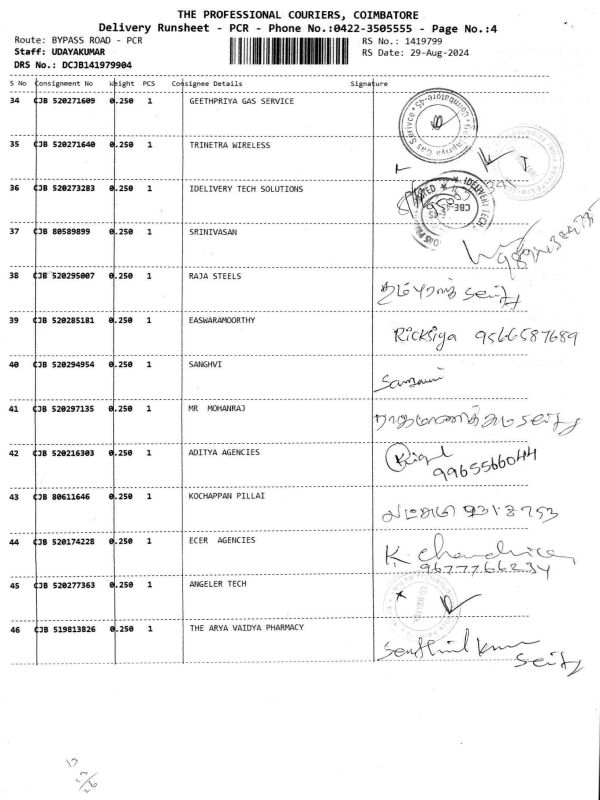 THE PROFESSIONAL COURIERS, COIMBATORE
Delivery Runsheet - PCR - Phone No.:0422-3505555 - Page No.:4
Route: BYPASS ROAD - PCR RS No.: 1419799
Staff: UDAYAKUMAR RS Date: 29-Aug-2024
DRS No.: DCJB141979904
S No Consignment No Weight PCS Consignee Details Signature
34 CJB 520271609 0.250 1 GEETHPRIYA GAS SERVICE
35 CJB 520271640 0.250 1 TRINETRA WIRELESS
36 CJB 520273283 0.250 1 IDELIVERY TECH SOLUTIONS
37 CJB 80589899 0.250 1 SRINIVASAN
38 CJB 520295007 0.250 1 RAJA STEELS
39 CJB 520285181 0.250 1 EASWARAMOORTHY Ricksiya 9566587689
40 CJB 520294954 0.250 1 SANGHVI
41 CJB 520297135 0.250 1 MR MOHANRAJ
42 CJB 520216303 0.250 1 ADITYA AGENCIES
9965566044
43 CJB 80611646 0.250 1 KOCHAPPAN PILLAI
44 CJB 520174228 0.250 1 ECER AGENCIES
9677766234
45 CJB 520277363 0.250 1 ANGELER TECH
46 CJB 519813826 0.250 1 THE ARYA VAIDYA PHARMACY
Senthil Kumar